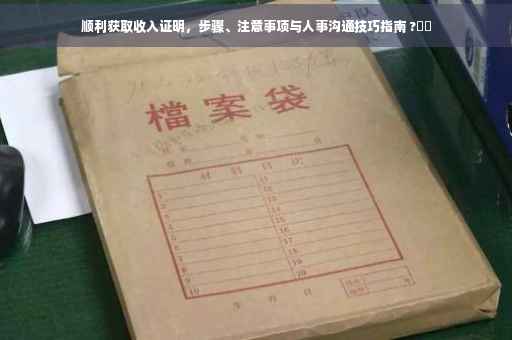 顺利获取收入证明，步骤、注意事项与人事沟通技巧指南?
檔案袋
材料目次
1 11
2 12
3 13
4 14
5 15
6 16
7 17
8 18
9 19
10 20
年 月 日